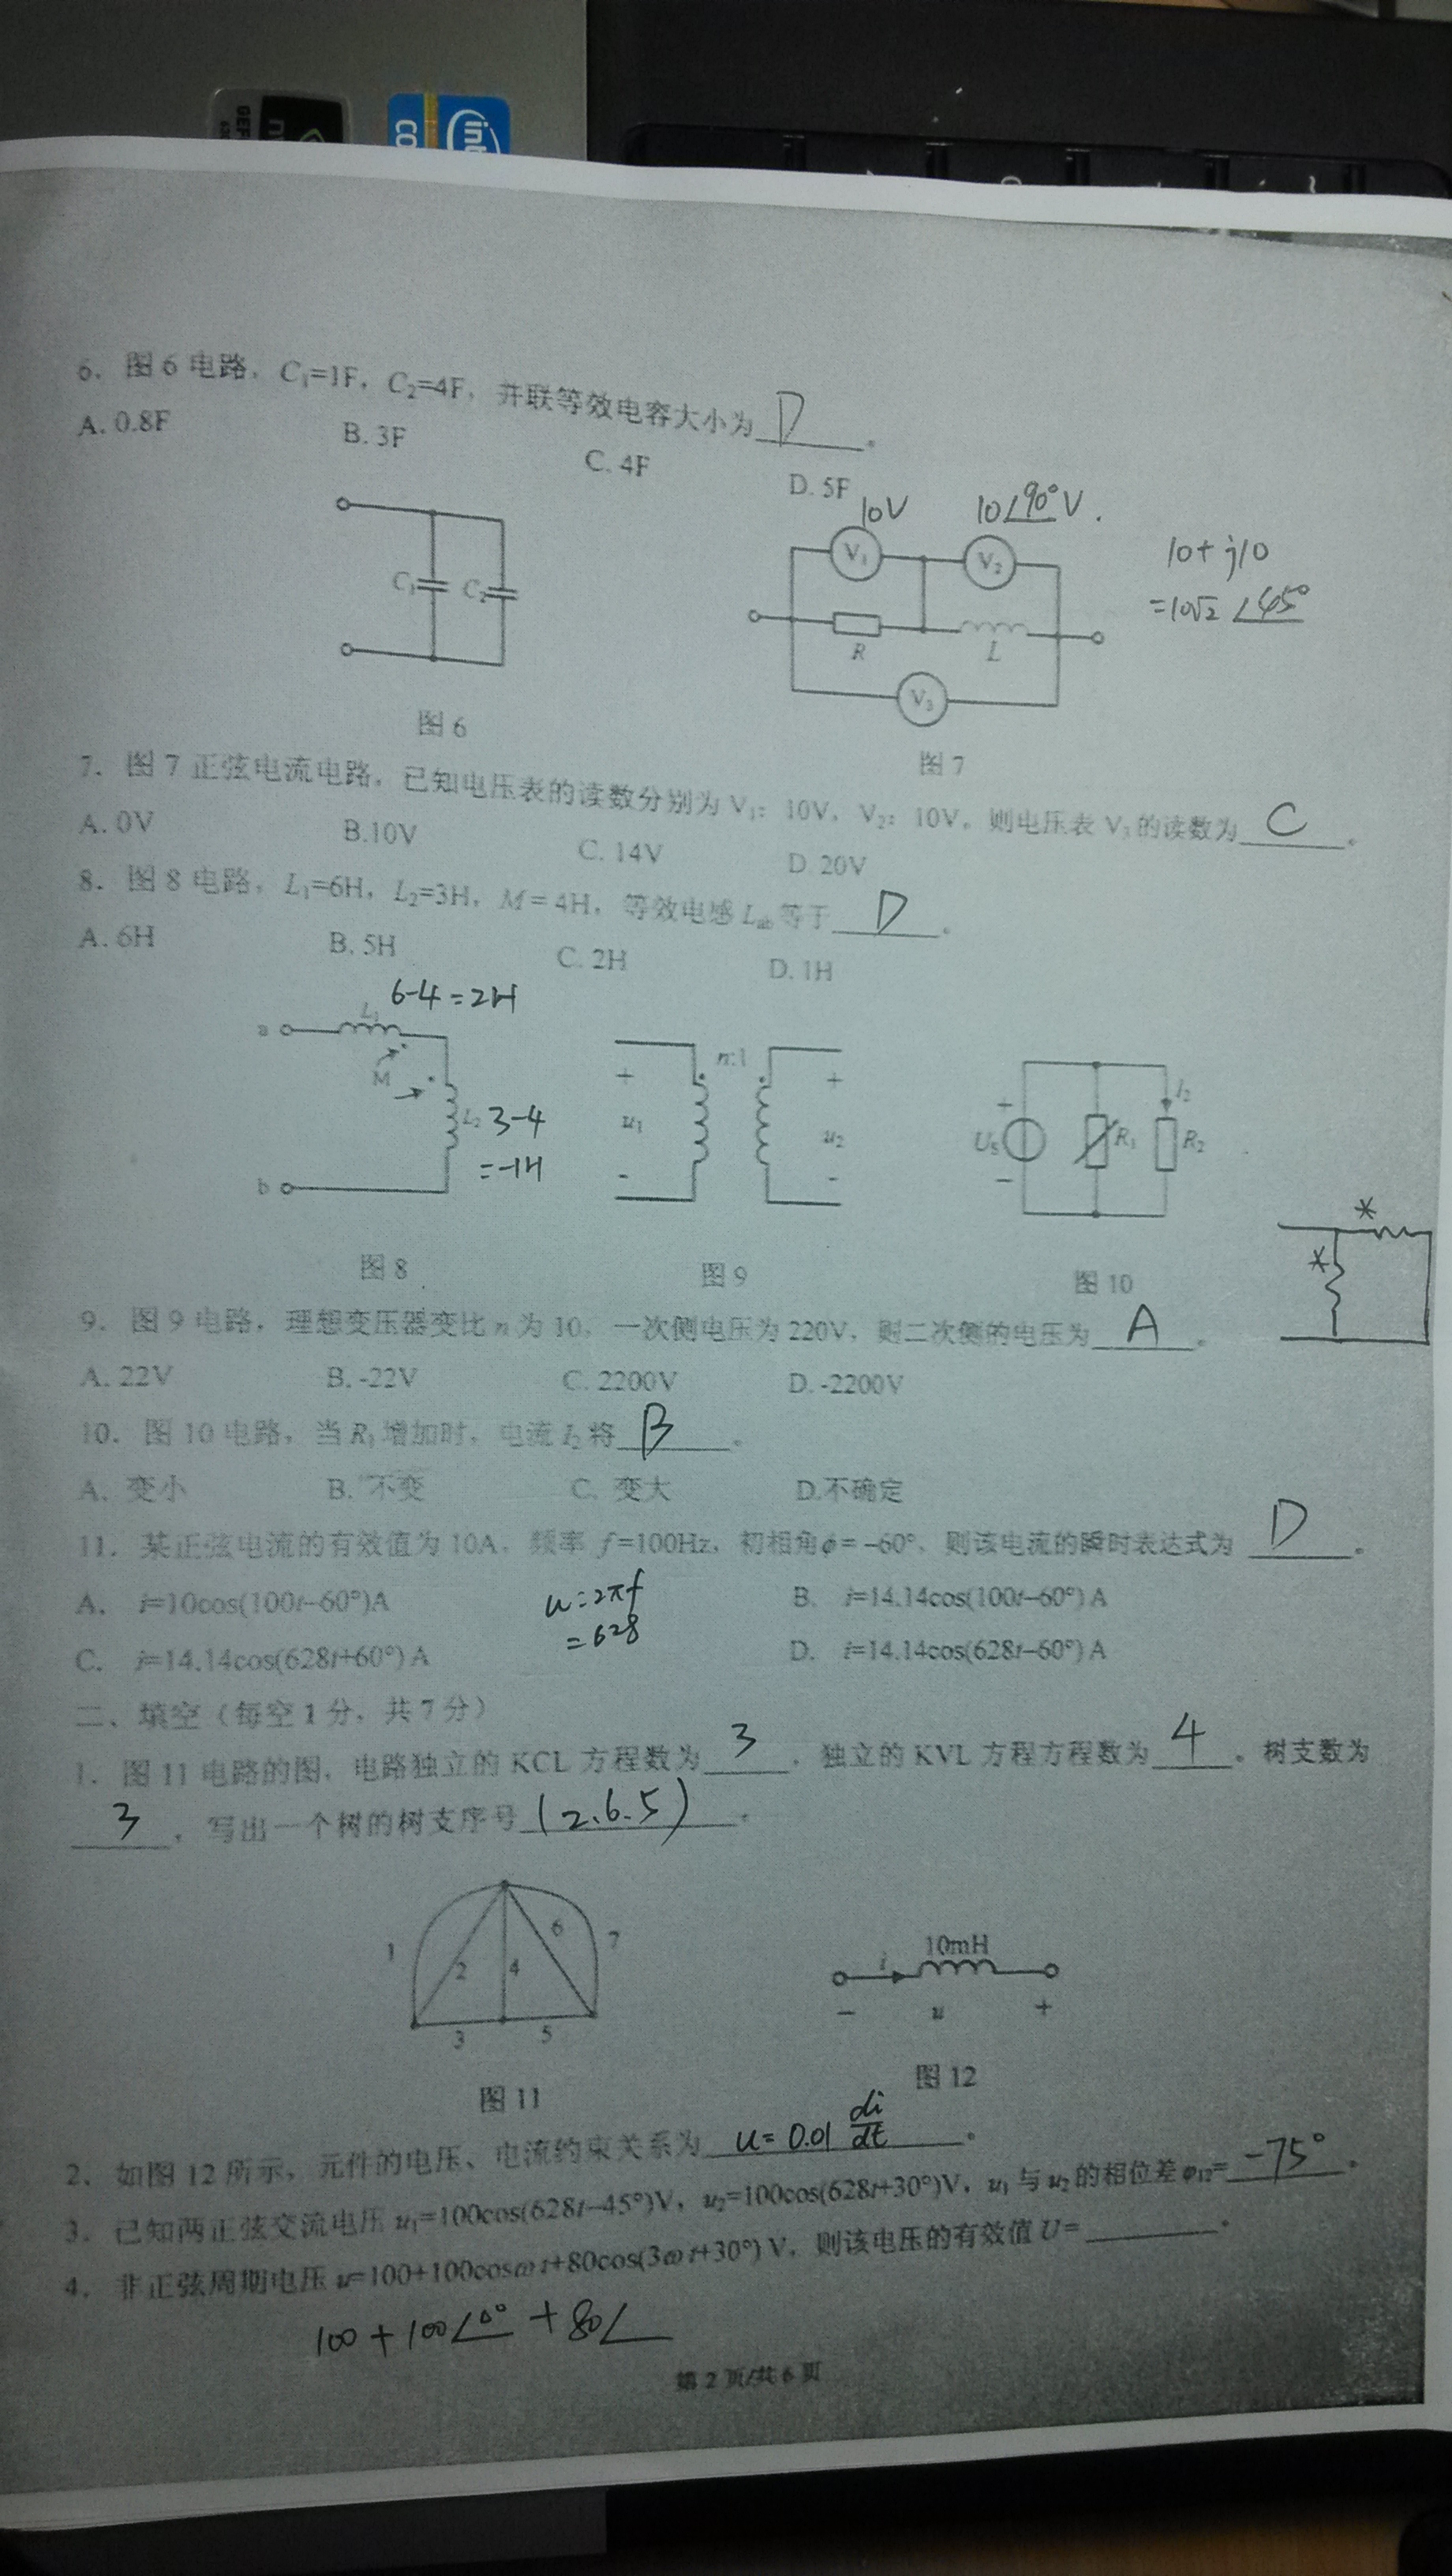 GEF
CO
6. 图 6 电路，C₁=1F，C₂=4F，并联等效电容大小为 D 。
A. 0.8F B. 3F C. 4F D. 5F
10V 10∠90°V.
C₁ C₂
V₁ V₂
10+j10
=10√2 ∠45°
R L
V₃
图 6
图 7
7. 图 7 正弦电流电路，已知电压表的读数分别为 V₁：10V，V₂：10V，则电压表 V₃ 的读数为 C 。
A. 0V B.10V C. 14V D. 20V
8. 图 8 电路，L₁=6H，L₂=3H，M = 4H，等效电感 Lab 等于 D 。
A. 6H B. 5H C. 2H D. 1H
6-4=2H
a L₁
M
L₂ 3-4
=-1H
b
n:1
+ u₁ -
+ u₂ -
+ US -
R₁ I₂ R₂
* *
图 8 图 9 图 10
9. 图 9 电路，理想变压器变比 n 为 10，一次侧电压为 220V，则二次侧的电压为 A 。
A. 22V B. -22V C. 2200V D. -2200V
10. 图 10 电路，当 R₁ 增加时，电流 I₂ 将 B 。
A. 变小 B. 不变 C. 变大 D.不确定
11. 某正弦电流的有效值为 10A，频率 f=100Hz，初相角 ϕ= –60°，则该电流的瞬时表达式为 D 。
A. i=10cos(100t–60°)A B. i=14.14cos(100t–60°) A
ω=2πf
=628
C. i=14.14cos(628t+60°) A D. i=14.14cos(628t–60°) A
二、填空（每空 1 分，共 7 分）
1. 图 11 电路的图，电路独立的 KCL 方程数为 3 ，独立的 KVL 方程方程数为 4 。树支数为
3 ，写出一个树的树支序号 (2.6.5) 。
1 2 4 6 7
3 5
10mH
i
- u +
图 11
图 12
2. 如图 12 所示，元件的电压、电流约束关系为 u= 0.01 di/dt 。
3. 已知两正弦交流电压 u₁=100cos(628t–45°)V，u₂=100cos(628t+30°)V，u₁ 与 u₂ 的相位差 φ₁₂= -75° 。
4. 非正弦周期电压 u=100+100cosω t+80cos(3ω t+30°) V，则该电压的有效值 U= 。
100+100∠0° +80∠
第 2 页/共 6 页